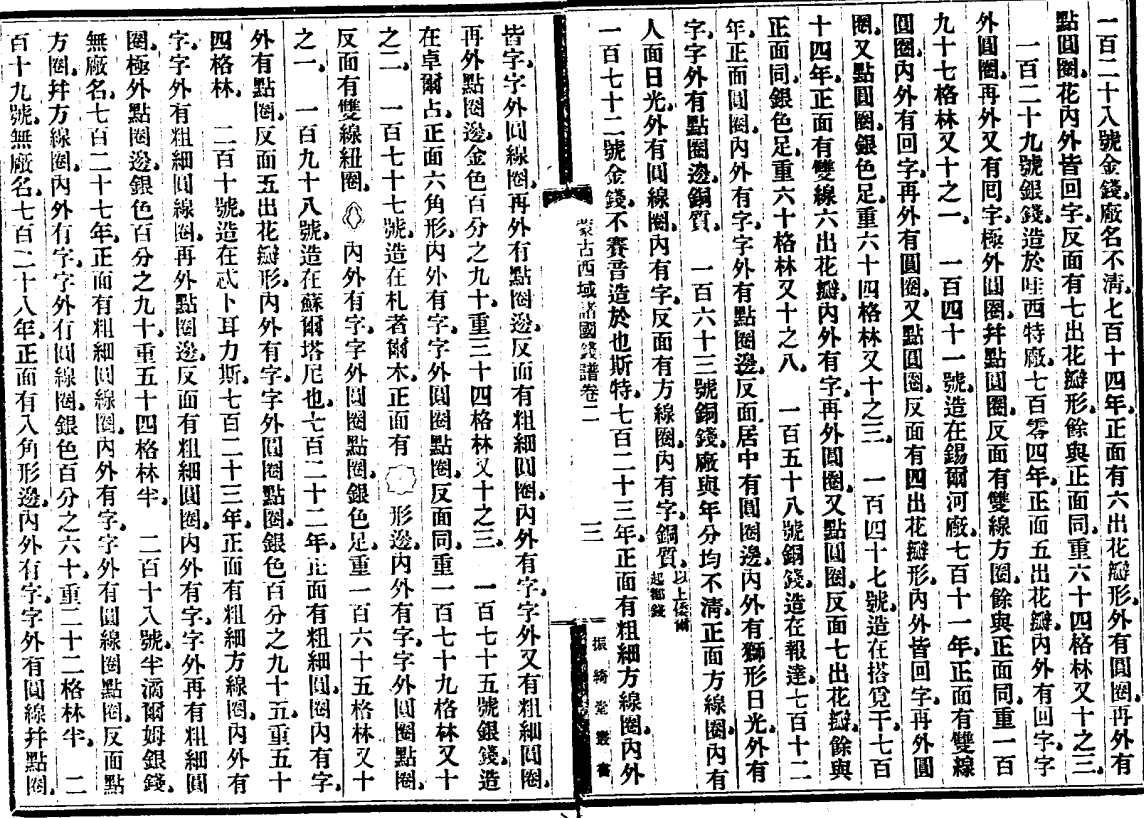 一百二十八號金錢。廠名不清。七百十四年。正面有六出花瓣形。外有圓圈。再外有
點圓圈。花內外皆回字。反面有七出花瓣形。餘與正面同。重六十四格林又十之三。
一百二十九號銀錢。造於哇西特廠。七百零四年。正面五出花瓣。內外有回字。字
外圓圈。再外又有回字。極外圓圈幷點圓圈。反面有雙線方圈。餘與正面同。重一百
九十七格林又十之一　一百四十一號。造在錫爾河廠。七百十一年。正面有雙線
圓圈。內外有回字。再外有圓圈。又點圓圈。反面有四出花瓣形。內外皆回字。再外圓
圈。又點圓圈。銀色足。重六十四格林又十之三　一百四十七號。造在搭寬干。七百
十四年。正面有雙線六出花瓣。內外有字。再外圓圈。又點圓圈。反面七出花瓣。餘與
正面同。銀色足。重六十格林又十之八　一百五十八號銅錢。造在報達。七百十二
年。正面圓圈。內外有字。字外有點圈邊。反面居中有圓圈邊。內外有獅形日光。外有
字。字外有點圈邊。銅質　一百六十三號銅錢。廠與年分均不清。正面方線圈。內有
人面日光。外有圓線圈。內有字。反面有方線圈。內有字。銅質。以上倭爾起都錢
一百七十二號金錢。不賽晉造於也斯特。七百二十三年。正面有粗細方線圈。內外
蒙古西域諸國錢譜卷二　三　振綺堂叢書
皆字。字外圓線圈。再外有點圈邊。反面有粗細圓圈。內外有字。字外又有粗細圓圈。
再外點圈邊。金色百分之九十。重三十四格林又十之三　一百七十五號銀錢。造
在卓爾占。正面六角形。內外有字。字外圓圈點圈。反面同。重一百七十九格林又十
之二　一百七十七號。造在札者爾木。正面有　形邊。內外有字。字外圓圈點圈。
反面有雙線紐圈。　內外有字。字外圓圈點圈。銀色足。重一百六十五格林又十
之一　一百九十八號。造在蘇爾塔尼也。七百二十二年。正面有粗細圓。圈內有字。
外有點圈。反面五出花瓣形。內外有字。字外圓圈點圈。銀色百分之九十五。重五十
四格林　二百十號。造在忒卜耳力斯。七百二十三年。正面有粗細方線圈。內外有
字。字外有粗細圓線圈。再外點圈邊。反面有粗細圓圈。內外有字。字外再有粗細圓
圈。極外點圈邊。銀色百分之九十。重五十四格林半　二百十八號。半滴爾姆銀錢。
無廠名。七百二十七年。正面有粗細圓線圈。內外有字。字外有圓線圈點圈。反面點
方圈。幷方線圈。內外有字。字外有圓線圈。銀色百分之六十。重二十二格林半。　二
百十九號。無廠名。七百二十八年。正面有八角形邊。內外有字。字外有圓線幷點圈。